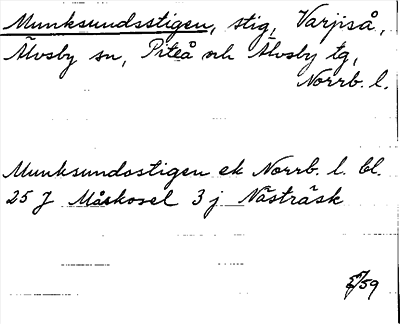 Munksundsstigen, stig, Varjiså,
Älvsby sn, Piteå o Älvsby tg,
Norrb. l.
Munksundsstigen ek Norrb. l. bl.
25 J Måskosel 3 j Nästräsk
59